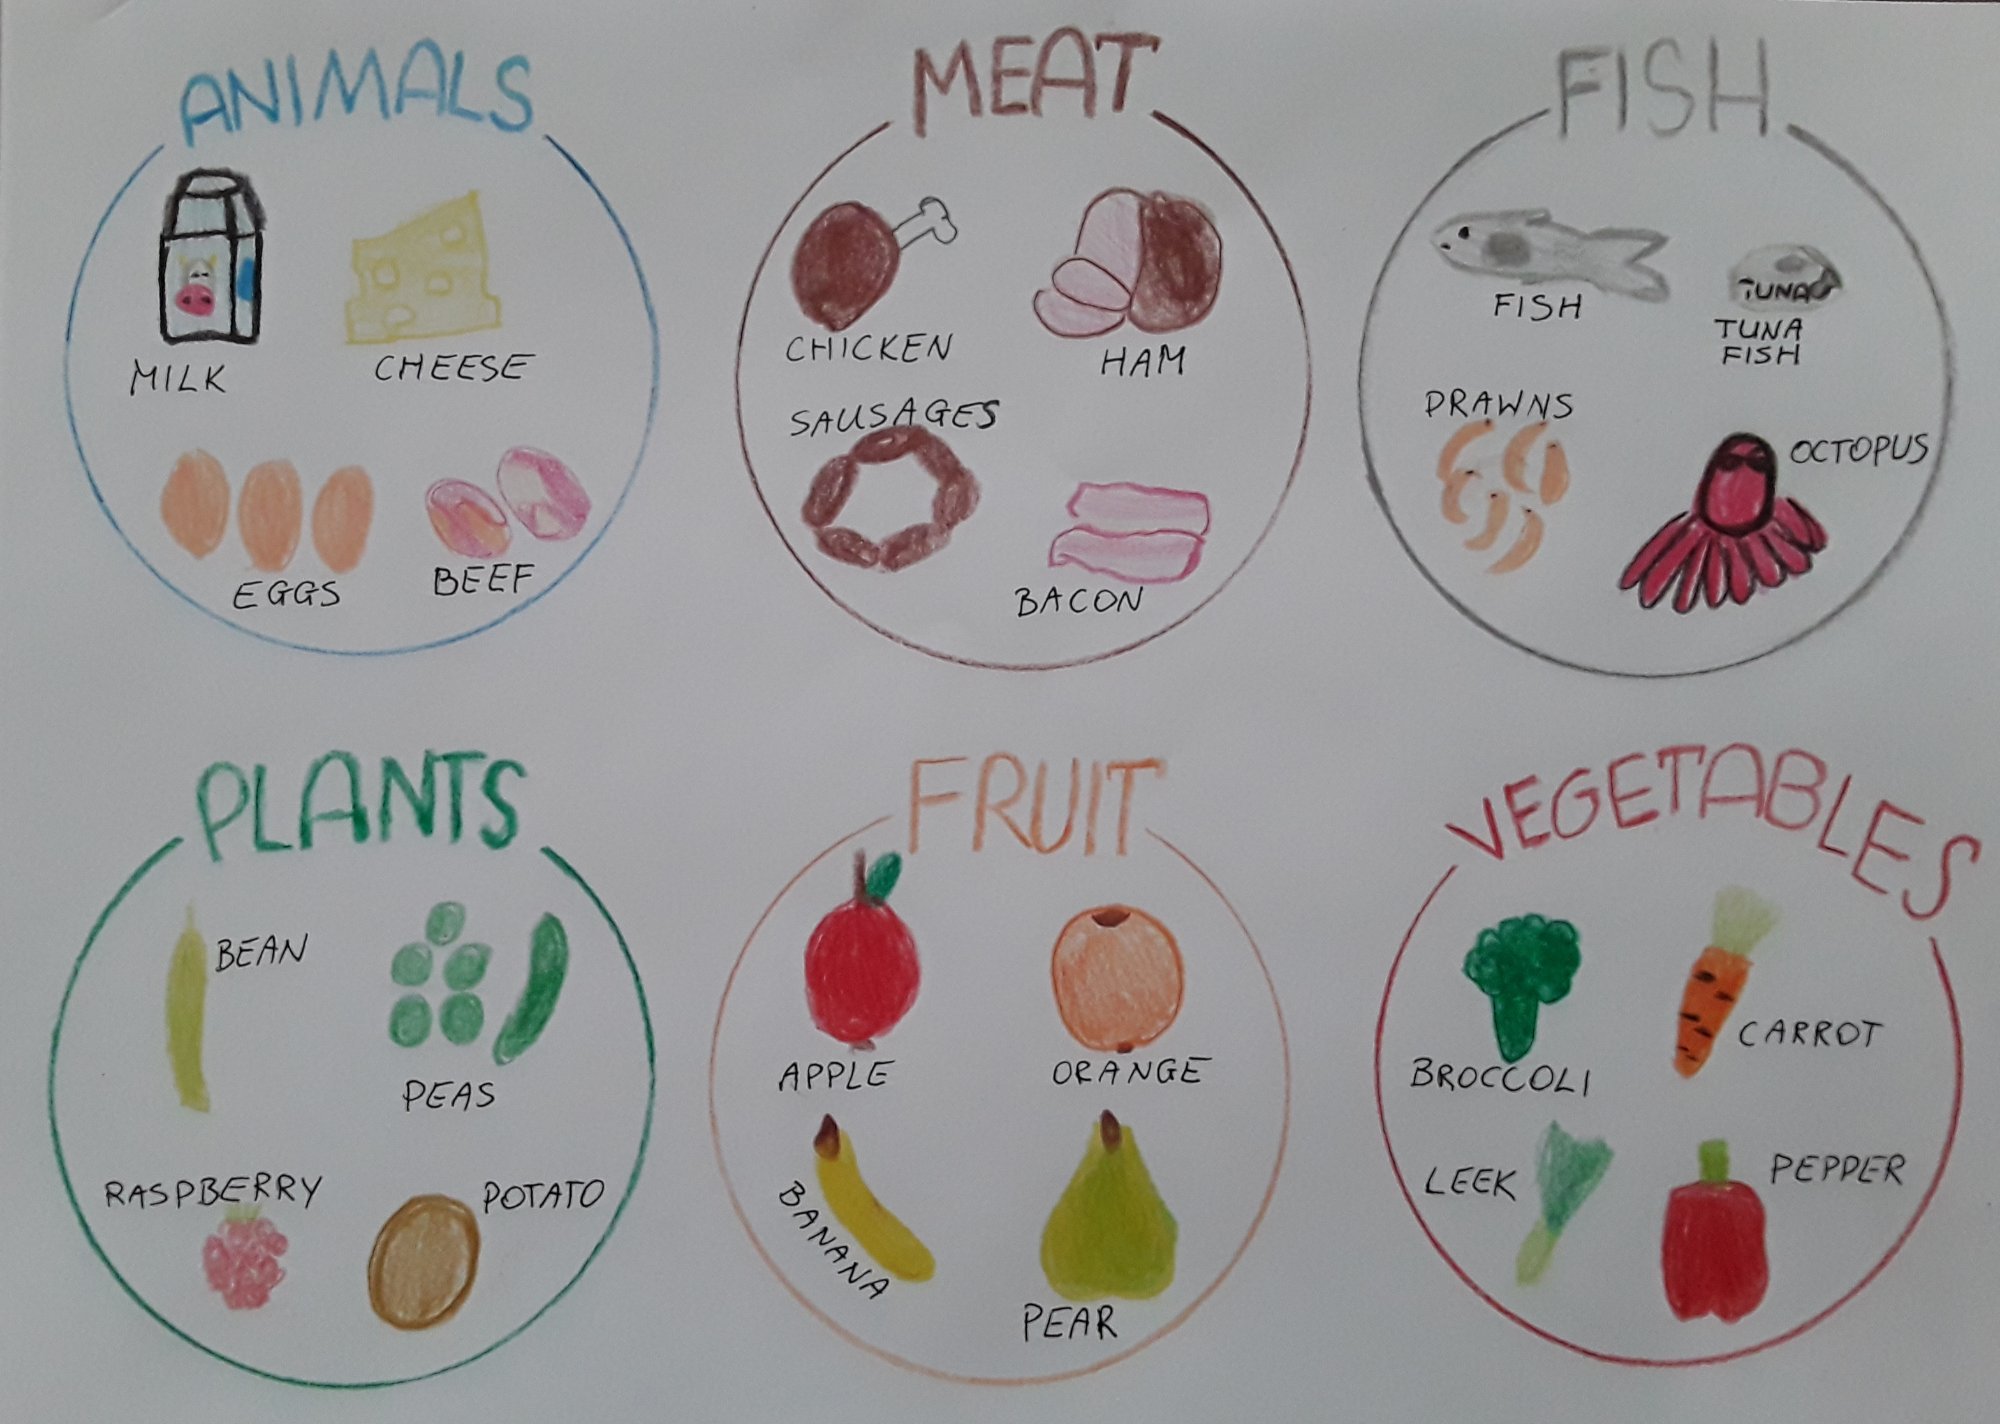 ANIMALS
MILK
CHEESE
EGGS
BEEF
MEAT
CHICKEN
HAM
SAUSAGES
BACON
FISH
FISH
TUNA
TUNA
FISH
PRAWNS
OCTOPUS
PLANTS
BEAN
PEAS
RASPBERRY
POTATO
FRUIT
APPLE
ORANGE
BANANA
PEAR
VEGETABLES
BROCCOLI
CARROT
LEEK
PEPPER